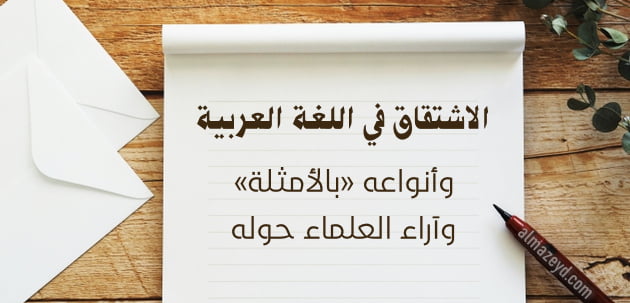 الاشتقاق في اللغة العربية
وأنواعه «بالأمثلة»
وآراء العلماء حوله
almazeyd.com